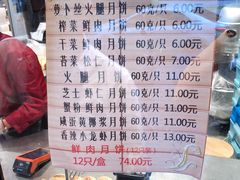 萝卜丝火腿月饼 60克/只 6.00元
榨菜鲜肉月饼 60克/只 6.00元
干菜鲜肉月饼 60克/只 6.00元
苔菜松仁月饼 60克/只 7.00元
火腿月饼 60克/只 11.00元
芝士虾仁月饼 60克/只 11.00元
蟹粉鲜肉月饼 60克/只 11.00元
咸蛋黄椰浆月饼 60克/只 11.00元
香辣小龙虾月饼 60克/只 13.00元
鲜肉月饼(12只装)
12只/盒 74.00元